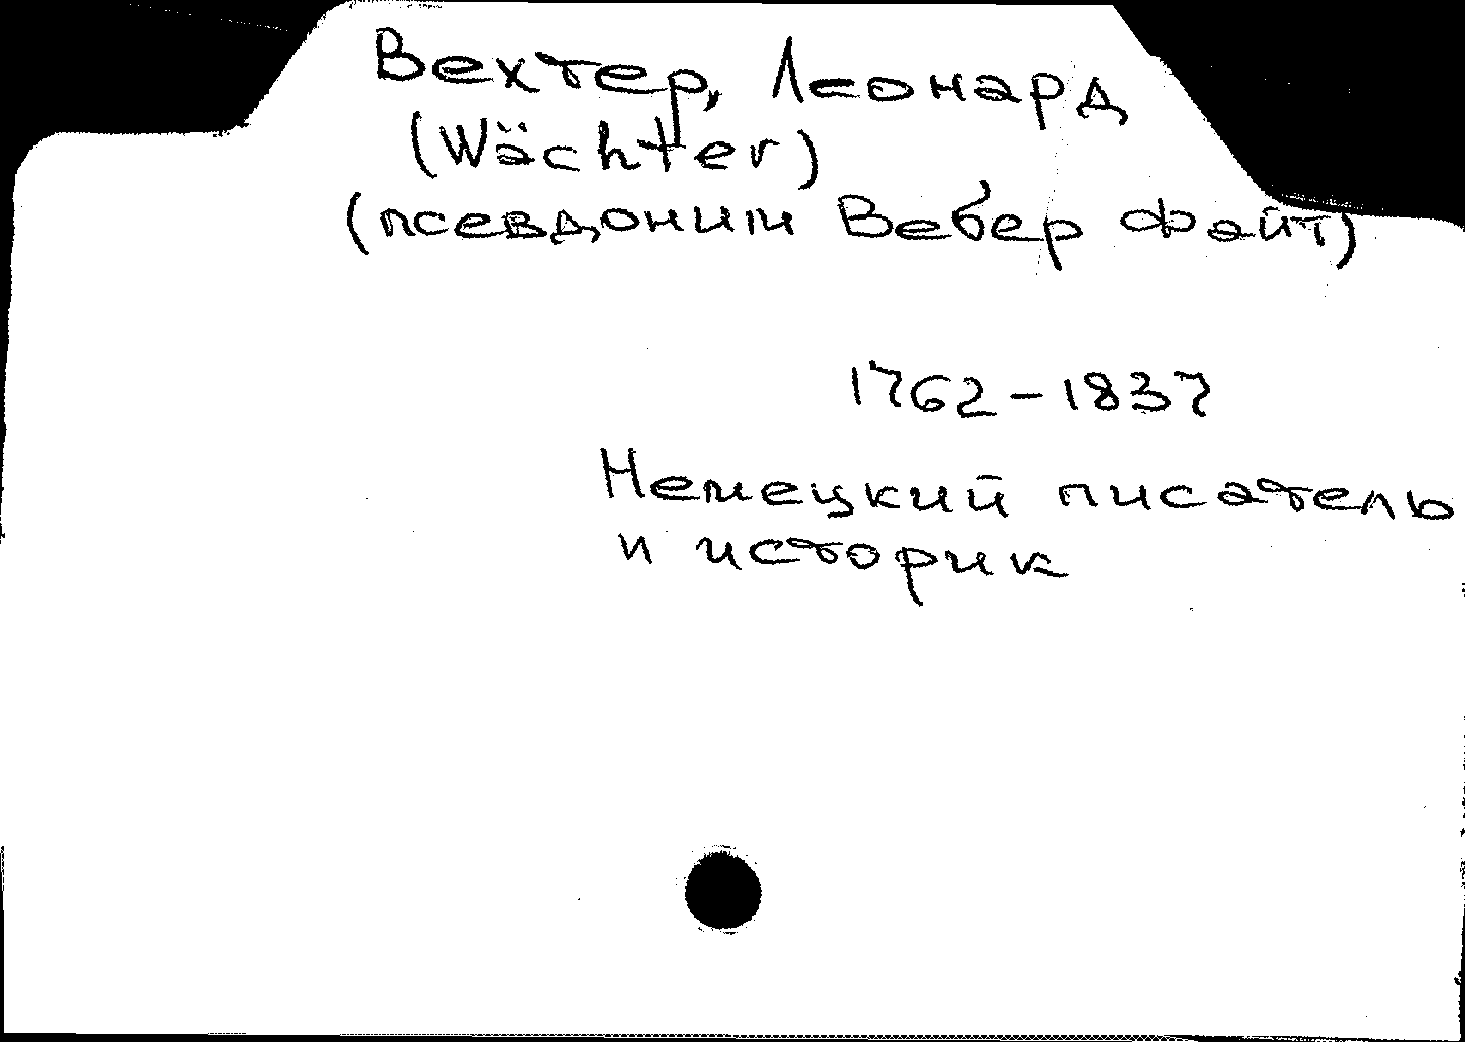 Вехтер, Леонард
(Wächter)
(псевдоним Вебер Файт)
1762-1837
Немецкий писатель
и историк